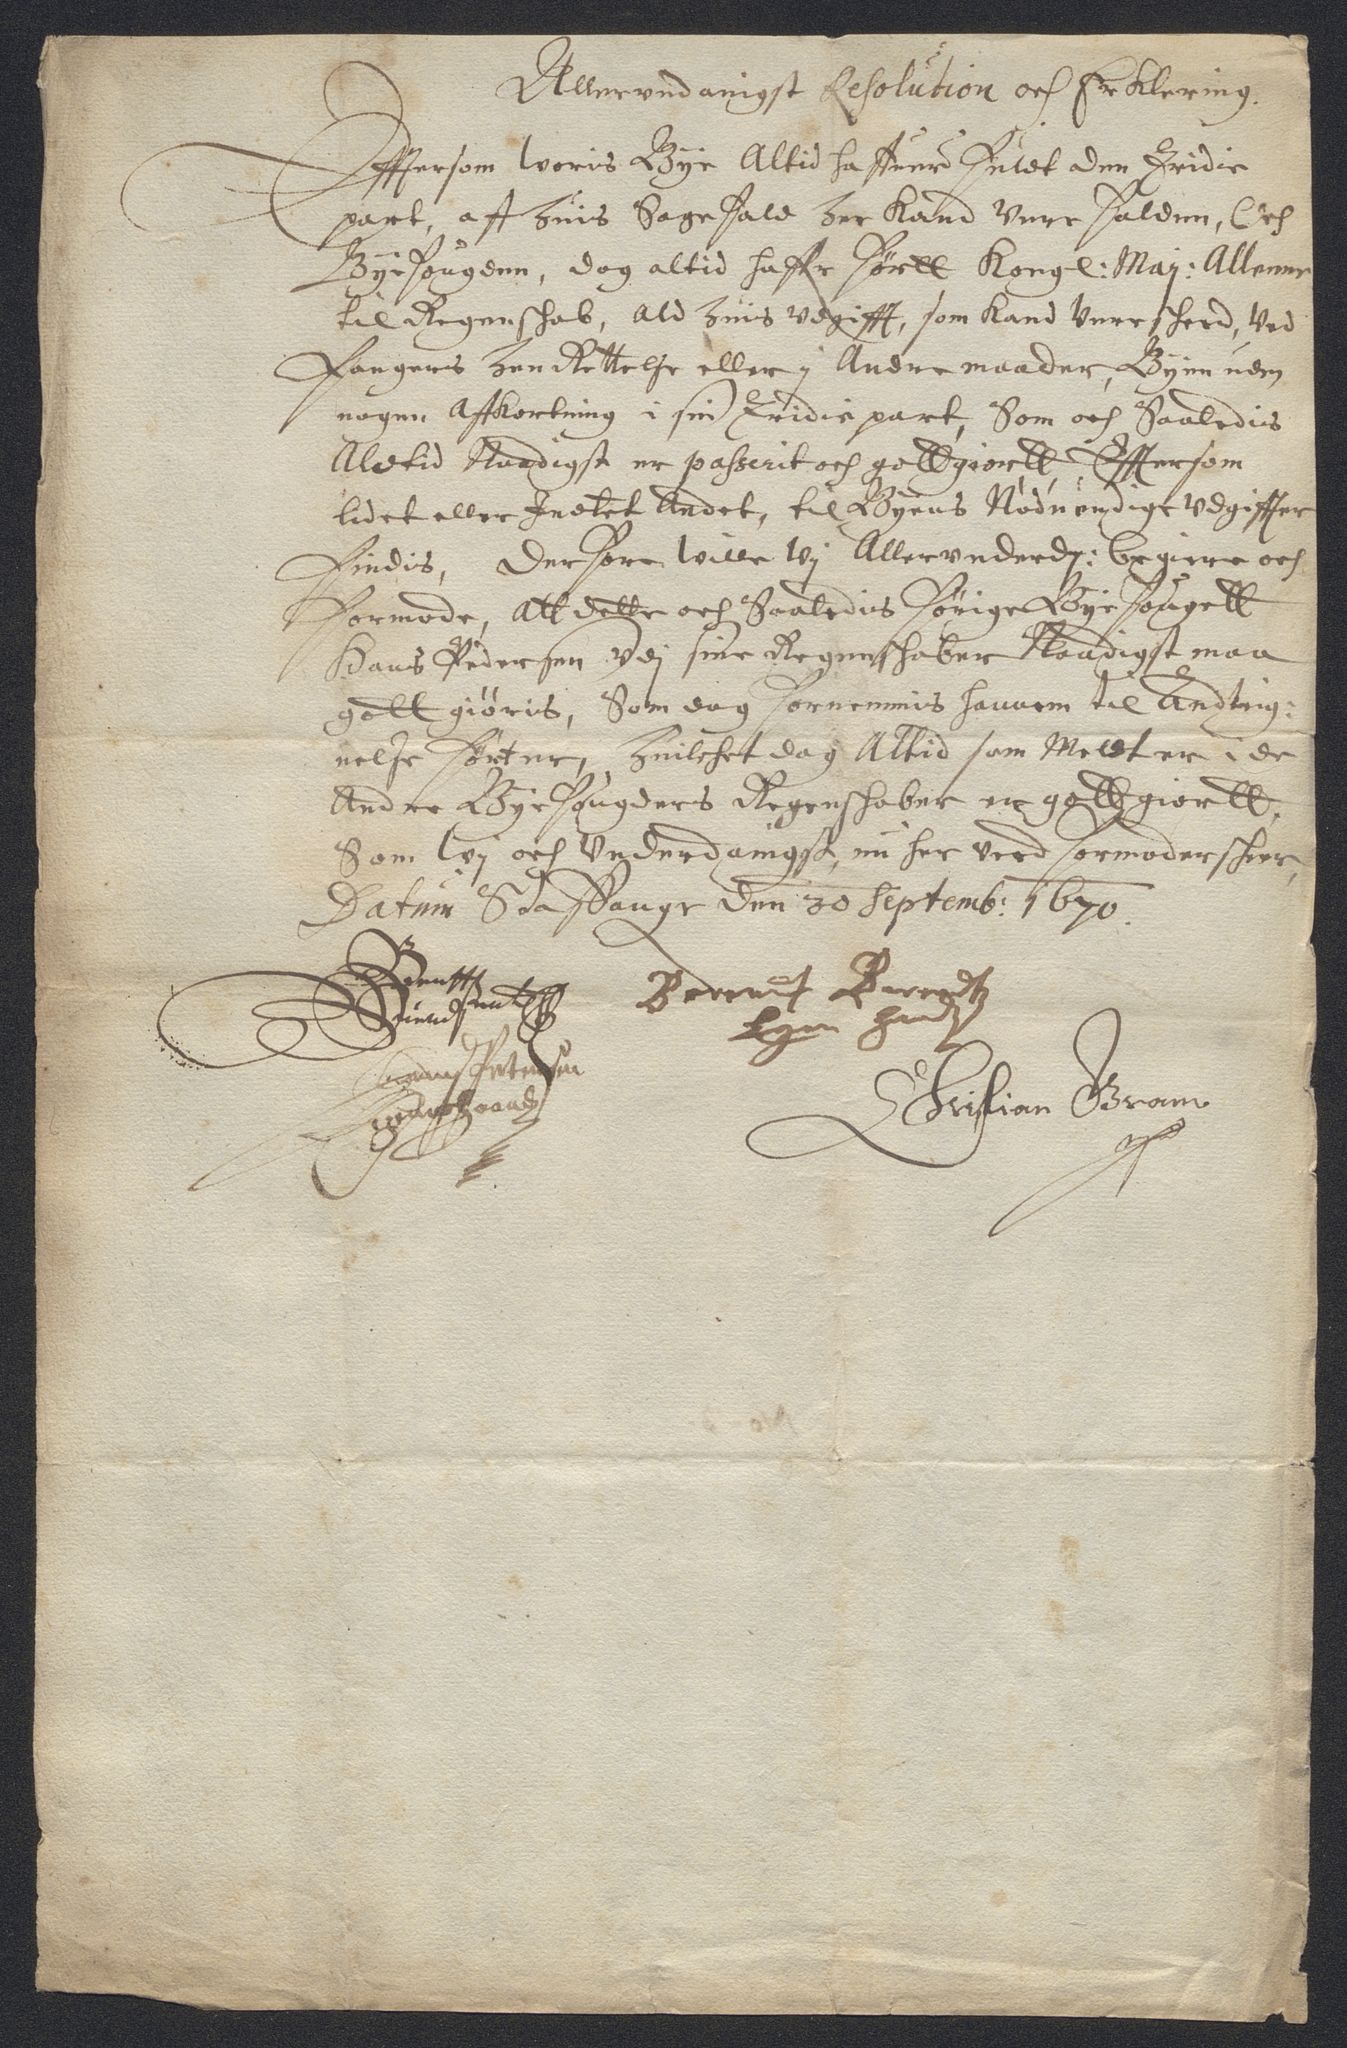 Allervndanigst Resolution och Erklering.
Effersom woris Bye Altid haffuer fuldt den Tridie
part, aff huis Sagefald her kand vere falden, Och
Byefougden, dog altid haffr førtt Kongl: May: Allenne
til Regenschab, ald huis vdgifft, som kand vere scheed, ved
Fangers henRettelse eller j Andre maader, Byen uden
nogen Affkortning i sin Tridie part, Som och Saaledis
Aldtid Naadigst er passerit och gottgiortt, Effersom
lidet eller Indtet Andet, til Byens Nødvendige vdgiffter
Findis, Derfore wille wj Allervnderd: begiere och
formode, Att dette och Saaledis forige Byefougett
Hans Pedersen vdj sine Regenschaber Naadigst maa
gott giøris, Som dog fornemmis hannem til Andteig:
nelse førter, huilchet dog Altid som Meldt er i de
Andre Byefougders Regenschaber er gottgiortt,
Som wj och vnderdanigst, nu her ved formoder scheer,
Datum Staffanger den 30 Septemb: 1670.
Berendt Berendtz
Egen Handt
Petersen
Christian Bram